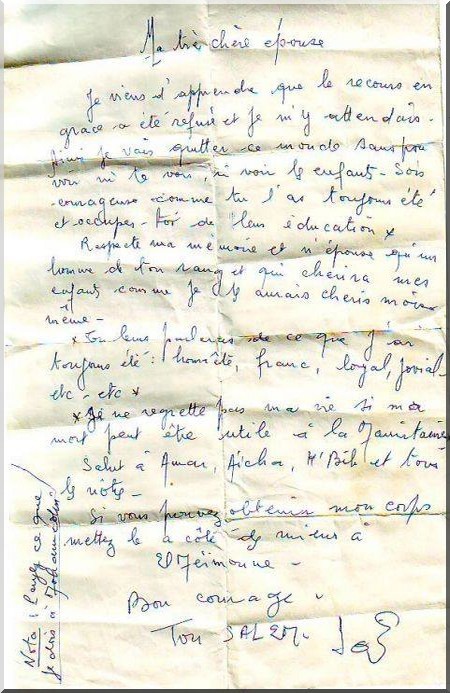 Ma très chère épouse
Je viens d'apprendre que le recours en
grâce a été refusé et Je m'y attendais.
Ainsi Je vais quitter ce monde sans pou
voir ni te voir, ni voir les enfants - Sois
courageuse comme tu l'as toujours été
et occupes-toi de leur éducation x
Respecte ma mémoire et n'épouse qu'un
homme de ton rang et qui chérira mes
enfants comme Je les aurais chéris moi
même -
x Tu leur parleras de ce que j'ai
toujours été : honnête, franc, loyal, jovial
etc - etc x
x Je ne regrette pas ma vie si ma
mort peut être utile à la Mauritanie
Salut à Amar, Aïcha, M'Beh et tous
les nôtres -
Si vous pouvez obtenir mon corps
mettez le à côté des miens à
El Meimoune -
Bon courage.
Ton SALEM.
Nota : Payez ce que
Je dois à